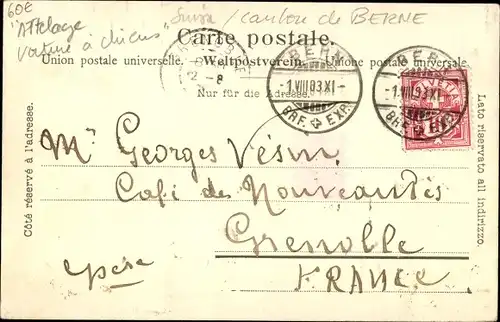 60€
Suisse / canton de BERNE
"Attelage
voiture à chiens"
Carte postale.
Union postale universelle. - Weltpostverein. - Unione postale universale.
Nur für die Adresse.
BERN
-1.VIII.03.XI-
BRF. EXP.
BERN
-1.VIII.03.XI-
BRF. EXP.
Côté réservé à l'adresse.
Lato riservato all indirizzo.
Mr Georges Vésin
Café des Nouveautés
Grenoble
Isère
FRANCE.